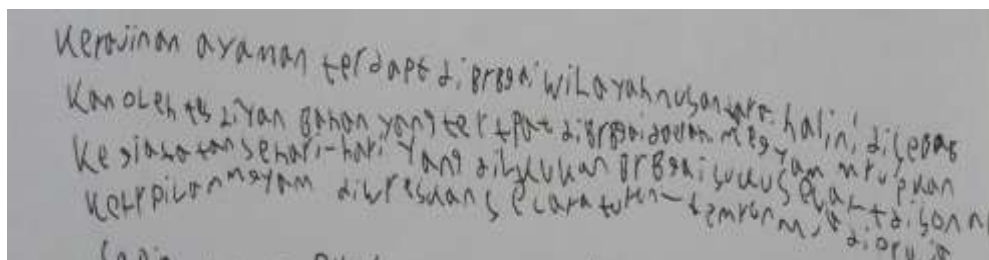 Kerajinan ayaman terdapt di brbgai wilayah nusantara. hal ini disebab
Kan oleh tsdiyan bahan yang tertpat di brbgai daerah megyam mrupkan
Kegiasatan sehari-hari yang dilukukan brbgai suku secar tdison
Ketrpilan mgyam diwreskan secara turun-temrun